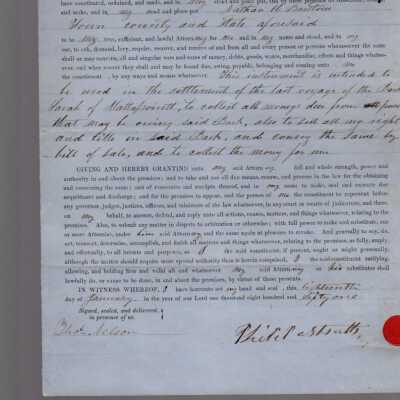 have constituted, ordained, and made, and in my stead and place put
and make, and in my stead and place put Nathan H. Barstow
Town county and State aforesaid
to be my true, sufficient, and lawful Attorney for me and in my name and stead, and to my
use, to ask, demand, levy, require, recover, and receive of and from all and every person or persons whomsoever the same
shall or may concern, all and singular sum and sums of money, debts, goods, wares, merchandise, effects and things whatsoever,
and when soever they shall and may be found due, owing, payable, belonging and coming unto me
the constituent by any ways and means whatsoever. This instrument is intended to
be used in the settlement of the last voyage of the Bark
Sarah of Mattapoisett, to collect all money due from all
that may be owing said Bark, also to sell all my right
and title in said Bark, and convey the same by
bill of sale, and to collect the money for me
GIVING AND HEREBY GRANTING unto my said Attorney full and whole strength, power and
authority in and about the premises; and to take and use all due means, course, and process in the law for the obtaining
and recovering the same; and of recoveries and receipts thereof, and in my name to make, seal and execute due
acquittance and discharge; and for the premises to appear, and the person of me the constituent to represent before
any governor, judges, justices, officers, and ministers of the law whatsoever, in any court or courts of judicature, and there,
on my behalf, to answer, defend, and reply unto all actions, causes, matters, and things whatsoever, relating to the
premises. Also, to submit any matter in dispute to arbitration or otherwise; with full power to make and substitute, one
or more Attornies, under him said Attorney and the same again at pleasure to revoke. And generally to say, do,
act, transact, determine, accomplish, and finish all matters and things whatsoever, relating to the premises, as fully, amply,
and effectually, to all intents and purposes, as I the said constituent, if present, ought or might personally,
although the matter should require more special authority than is herein comprised, I the said constituent ratifying,
allowing, and holding firm and valid all and whatsoever my said Attorney or his substitutes shall
lawfully do, or cause to be done, in and about the premises, by virtue of these presents.
IN WITNESS WHEREOF, I have hereunto set my hand and seal, this eighteenth
day of January in the year of our Lord one thousand eight hundred and sixty one
Signed, sealed, and delivered,
in presence of us
Nelson